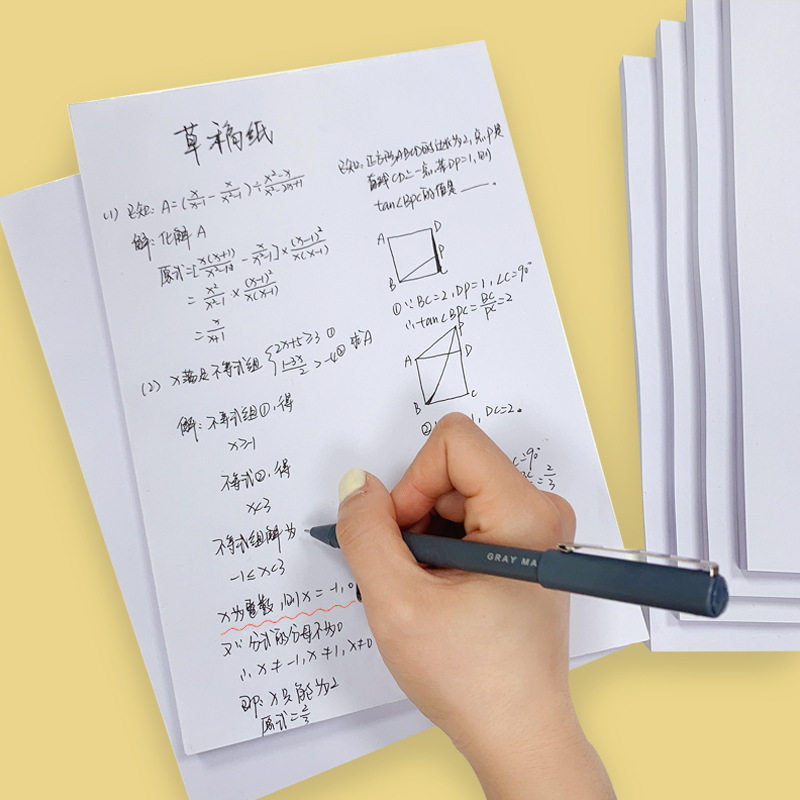 草稿纸
(1) 已知: A=(x/x-1 - x/x²-1)÷x²-x/x²-2x+1
解: 化解 A
原式=[x(x+1)/x²-1 - x/x²-1]×(x-1)²/x(x-1)
= x²/x²-1 × (x-1)²/x(x-1)
= x/x+1
(2) x满足不等式组{2x+5≥3 ① 1-3x/2>-4② 求A
解: 不等式组①, 得
x≥-1
不等式②, 得
x<3
不等式组解为
-1≤x<3
x为整数, 则x=-1, 0
又∵分式的分母不为0
∴x≠-1, x≠1, x≠0
即: x只能为2
原式=2/3
已知: 正方形ABCD的边长为2, 点P是
直线CD上一点, 若DP=1, 则
tan∠BPC的值是____.
A
D
P
B
C
①∵BC=2, DP=1, ∠C=90°
∴tan∠BPC=BC/PC=2
P
A
D
B
C
②
1, DC=2.
C=90°
=2/3
GRAY MA